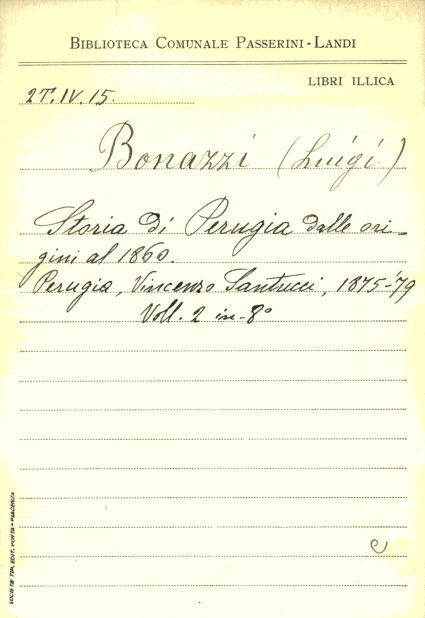 BIBLIOTECA COMUNALE PASSERINI-LANDI
LIBRI ILLICA
2T.IV.15.
Bonazzi (Luigi)
Storia di Perugia dalle ori-
gini al 1860.
Perugia, Vincenzo Santucci, 1875-'79
Voll. 2 in-8°
SOCIETÀ TIP. EDIT. PORTA - PIACENZA